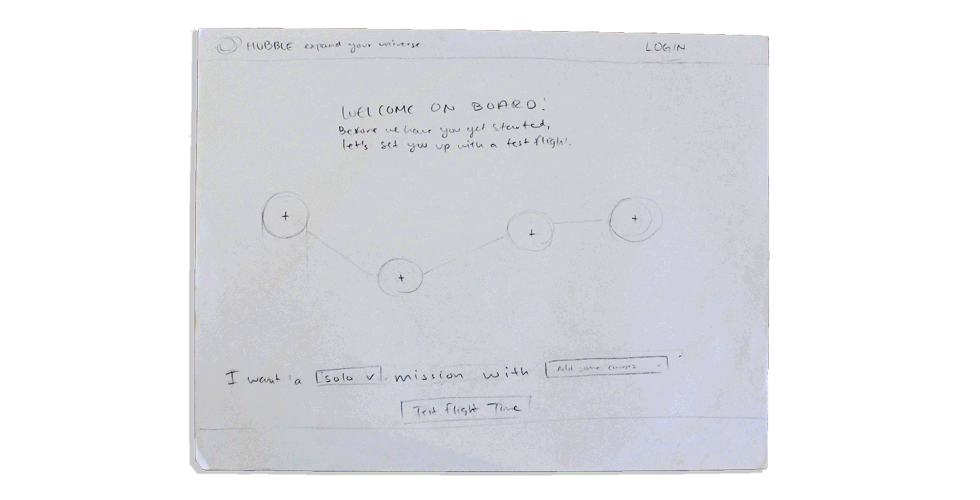 HUBBLE expand your universe
LOGIN
WELCOME ON BOARD!
Before we have you get started,
let's set you up with a test flight.
+
+
+
+
I want a solo v mission with Add some
Test Flight Time